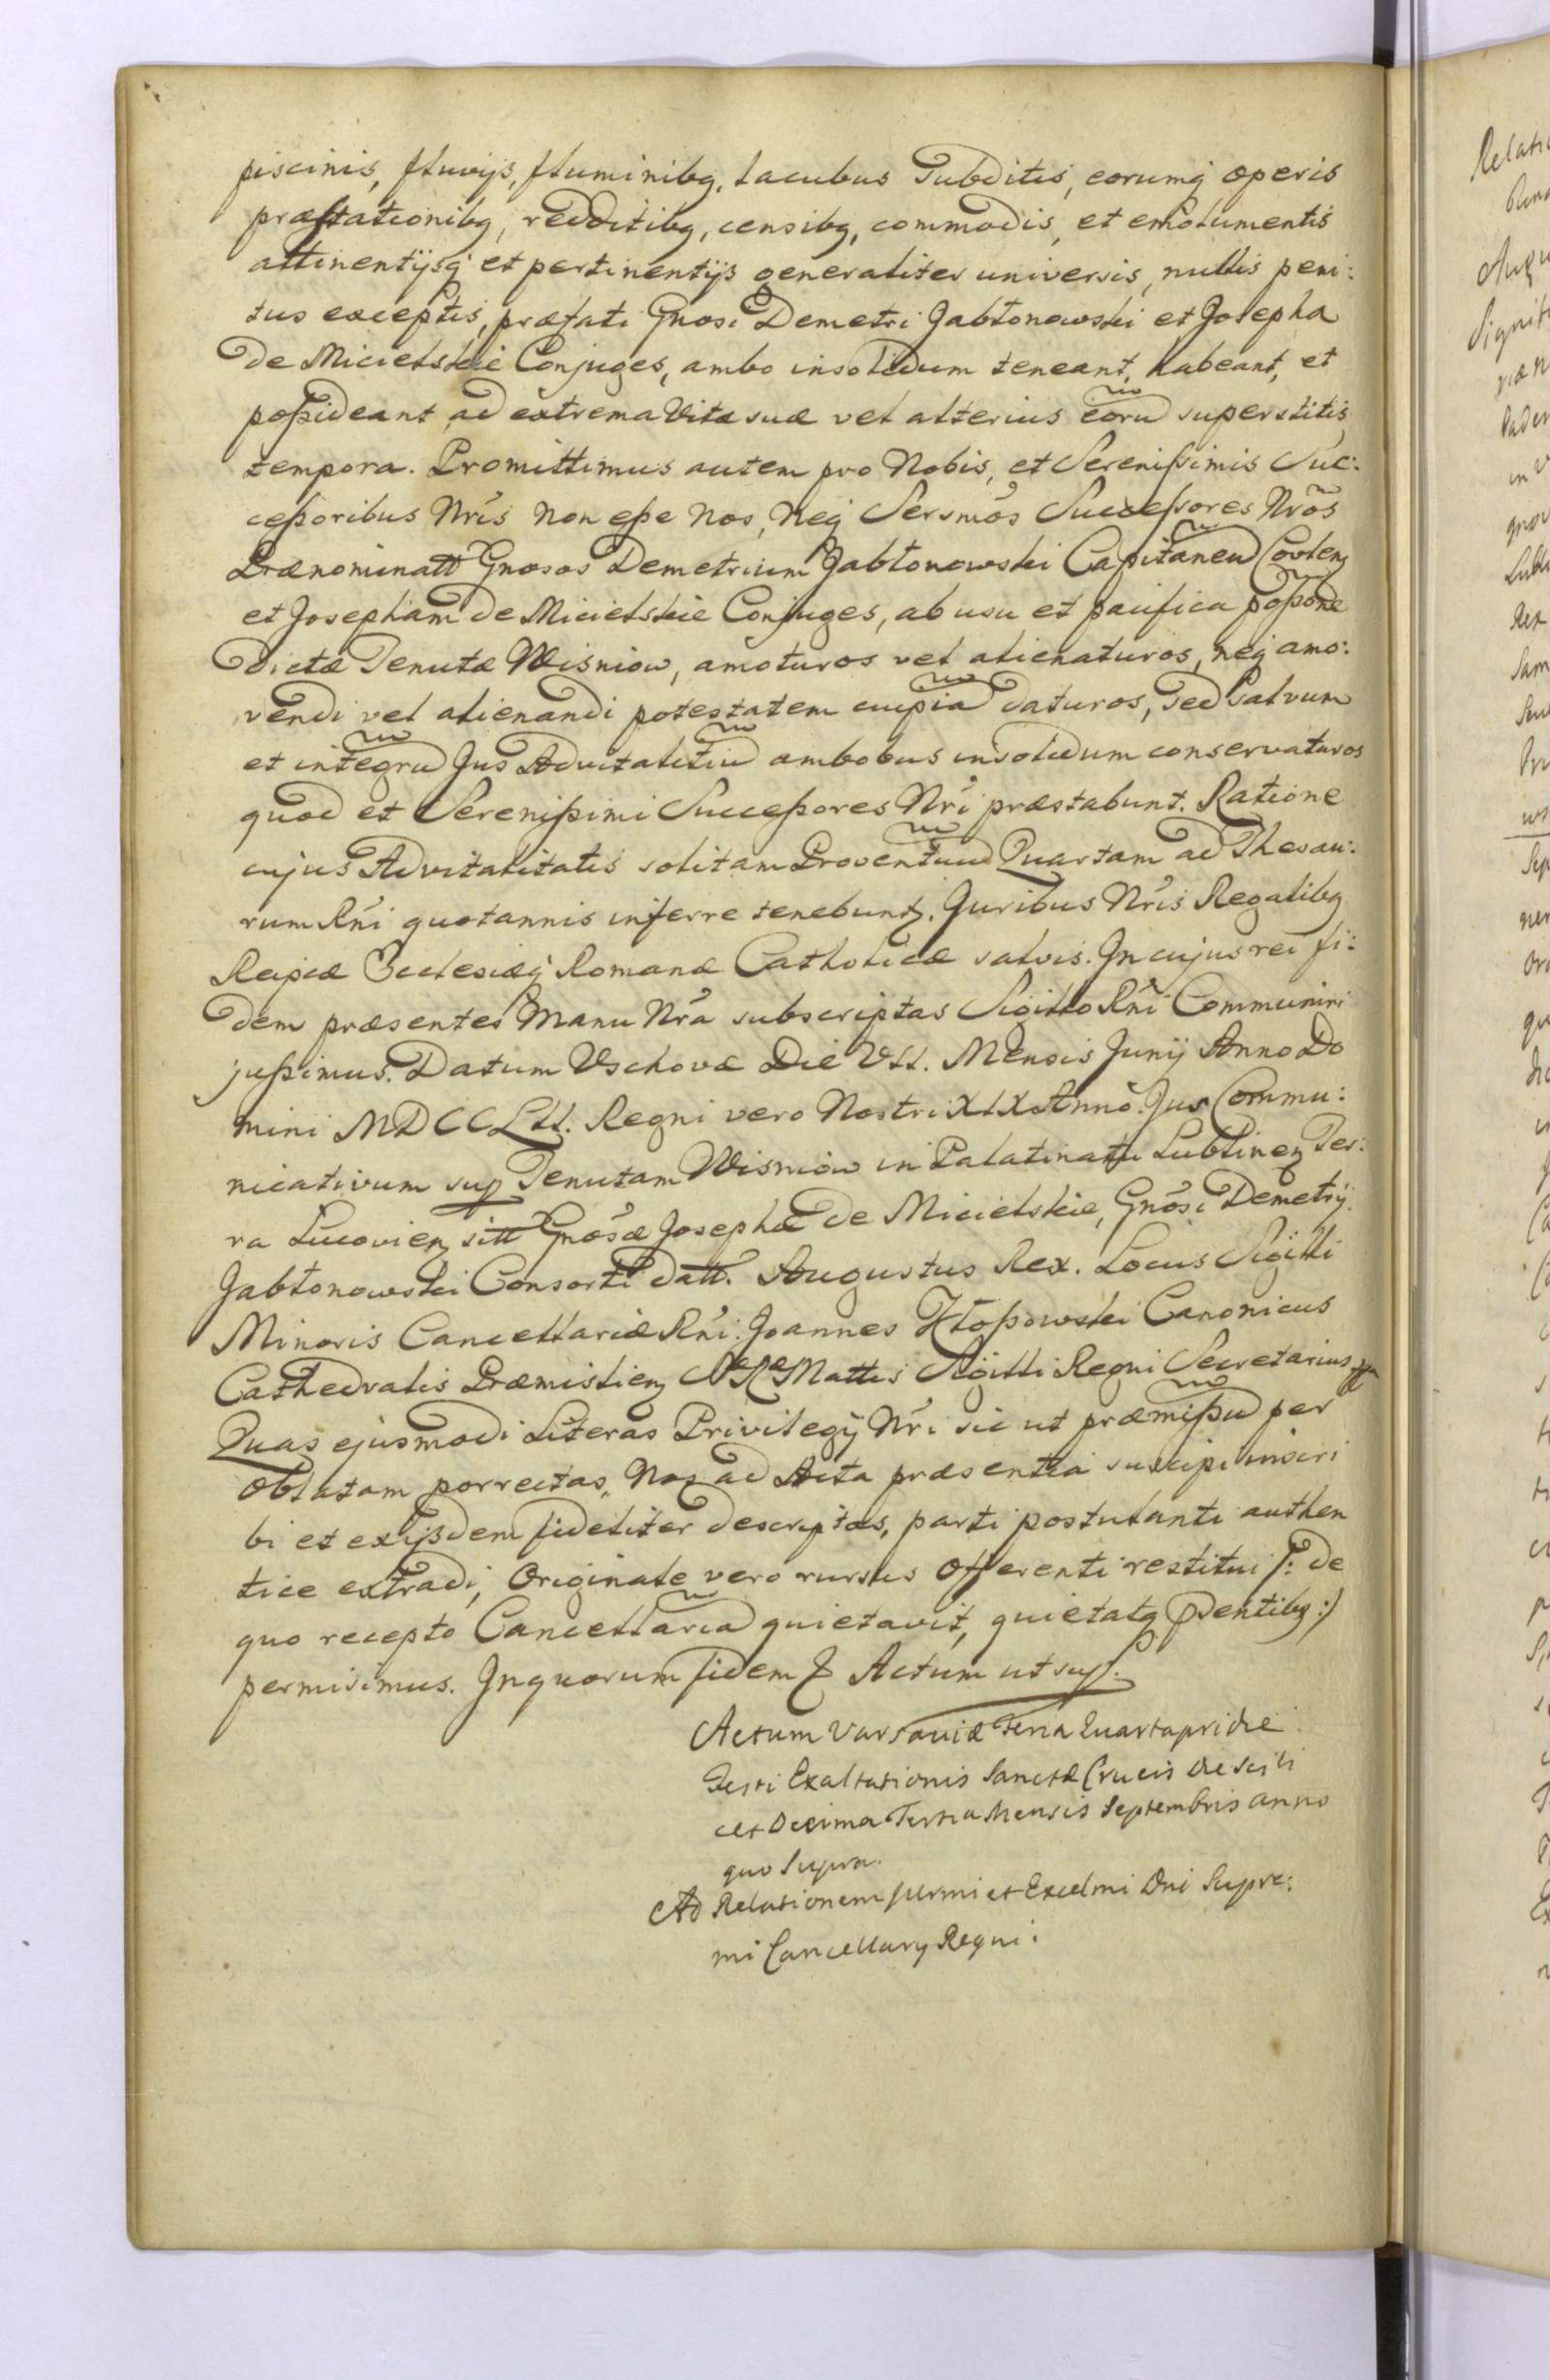 piscinis, fluvijs, fluminibq, lacubus Subditis, eorumq operis
præstationibq, redditibq, censibq, commodis, et emolumentis
attinentijsq et pertinentijs generaliter universis, nullis peni:
tus exceptis, præfati Gnosi Demetri Jabłonowski et Josepha
De Micielskie Conjuges, ambo insolidum teneant, habeant, et
poßideant ad extrema Vitæ suæ vel alterius eorũ superstitis
tempora. Promittimus autem pro Nobis, et Serenißimis Suc:
ceßoribus Nrĩs Non eße Nos, Neq Sersmõs Succeßores Nrõs
Prænominatt Gnosos Demetrium Jabłonowski Capitaneũ Covlen
et Josepham de Micielskie Conjuges, ab usu et pacifica poßõne
Dictæ Tenutæ Wisniow, amoturos vel alienaturos, neq amo:
vendi vel alienandi potestatem cuipiã daturos, sed Salvum
et integrũ Jus Advitalitiũ ambobus insolidum conservaturos
quod et Serenißimi Succeßores Nrĩ præstabunt. Ratione
cujus Advitalitatis solitam Proventuũ Quartam ad Thesau:
rum Rñi quotannis inferre tenebuntr. Juribus Nrĩs Regalibq
Reipcæ Ecclesiæq Romanæ Catholicæ salvis. In cujus rei fi:
dem præsentes Manu Nrã subscriptas Sigillo Rñi Communiri
jußimus. Datum Vschovæ Die VII. Mensis Junij Anno Do
mini MDCCLII. Regni vero Nostri XIX Anno. Jus Commu:
nicativum sup Tenutam Wisniow in Palatinatu Lublinen Ter:
ra Lucovien sitt Gnosæ Josephæ de Micielskie, Gnõsi Demetrij
Jabłonowski Consorti datt. Augustus Rex. Locus Sigilli
Minoris Cancellariæ Rñi. Joannes Kłoßowski Canonicus
Cathedralis Præmislien S R Mattis Sigilli Regni Secretarius
Quas ejusmodi Literas Privilegij Nrĩ sic ut præmißũ per
Oblatam porrectas, Nos ad Acta præsentia suscipi inscri
bi et exijsdem fideliter descriptas, parti postulanti authen
tice extradi, Originale vero rursus Offerenti restitui /: de
quo recepto Cancellariã quietavit, quietatq pdentibq :/
permisimus. In quorum fidem & Actum ut sup.
Actum Varsaviæ Feria Quarta pridie
Festi Exaltationis Sanctæ Crucis die scili
cet Decima Tertia Mensis Septembris anno
quo Supra.
Ad Relationem Jllrmi et Excelmi Dni Supre:
mi Cancellarij Regni.